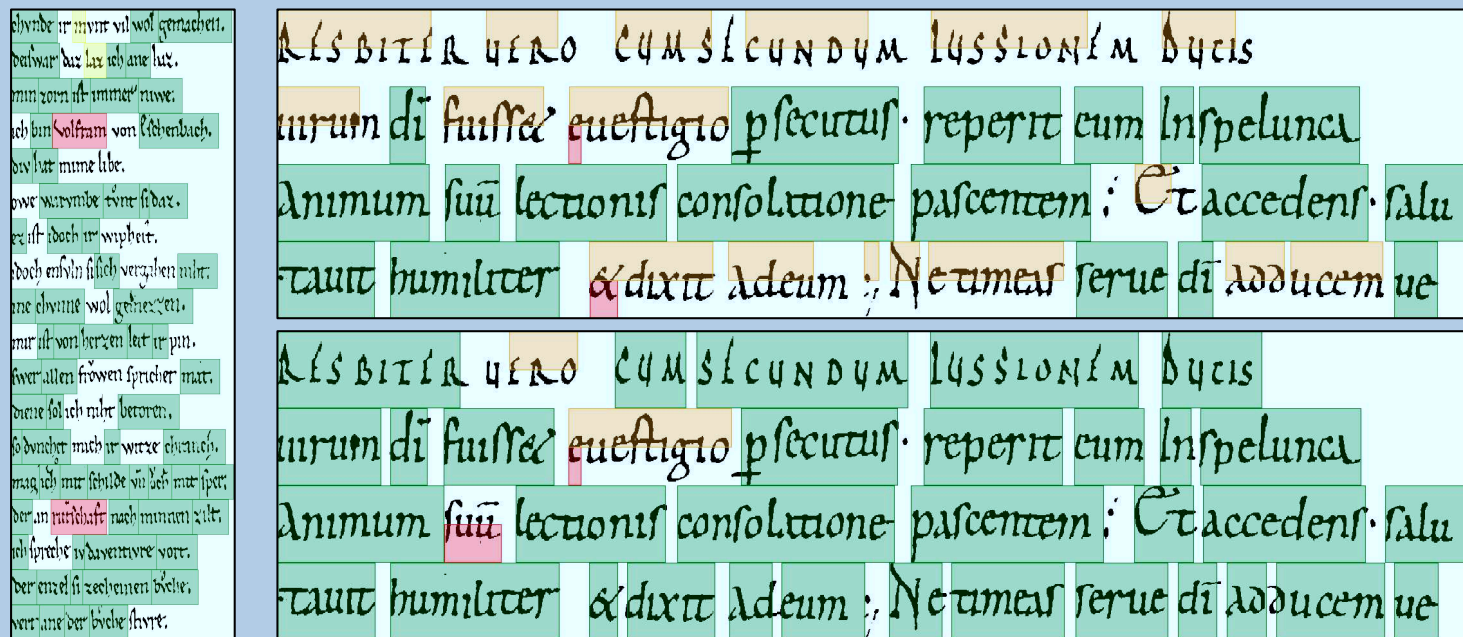 chvnde ir mvnt vil wol gemachen.
deiswar daz laz ich ane haz.
min zorn ist immer niwe.
ich bin wolfram von Eschenbach.
div hat mime libe.
owe warvmbe tvͦnt si daz.
ez ist idoch ir wipheit.
idoch ensvln si sich vergahen niht.
ine chvnne wol gemezzen.
mir ist von herzen leit ir pin.
swer allen frowen sprichet mat.
diene sol ich niht betoren.
so dvnchet mich ir witze chranch.
mag ich mit schilde vñ ʒch mit sper.
der an ritschaft nach minnen zilt.
ich spreche iv daventivre vort.
der enzel si zecheinen bvͦche.
vert ane der bvͦche stivre.
RESBITER UERO CUM SECUNDUM IUSSIONEM DUCIS
uirum di̅ fuisse& euestigio ꝑsecutus· reperit eum Inspelunca
Animum suu̅ lectionis consolatione pascentem ; Et accedens· salu
tauit humiliter & dixit Adeum ; Ne timeas serue di̅ adducem ue
RESBITER UERO CUM SECUNDUM IUSSIONEM DUCIS
uirum di̅ fuisse& euestigio ꝑsecutus· reperit eum Inspelunca
Animum suu̅ lectionis consolatione pascentem ; Et accedens· salu
tauit humiliter & dixit Adeum ; Ne timeas serue di̅ adducem ue